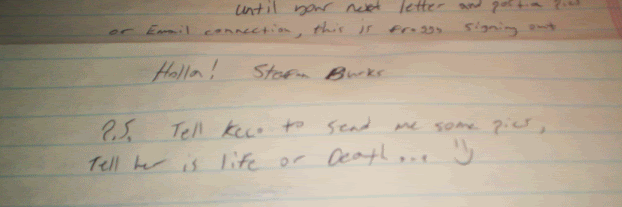 until your next letter and
or Email connection, this is Froggy signing out
Holla! Storm Burks
P.S. Tell to send me some pics,
Tell her is life or Death... :)